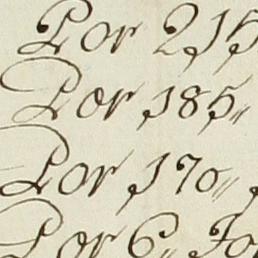 Por 215
Por 185„
Por 170„
Por 6„